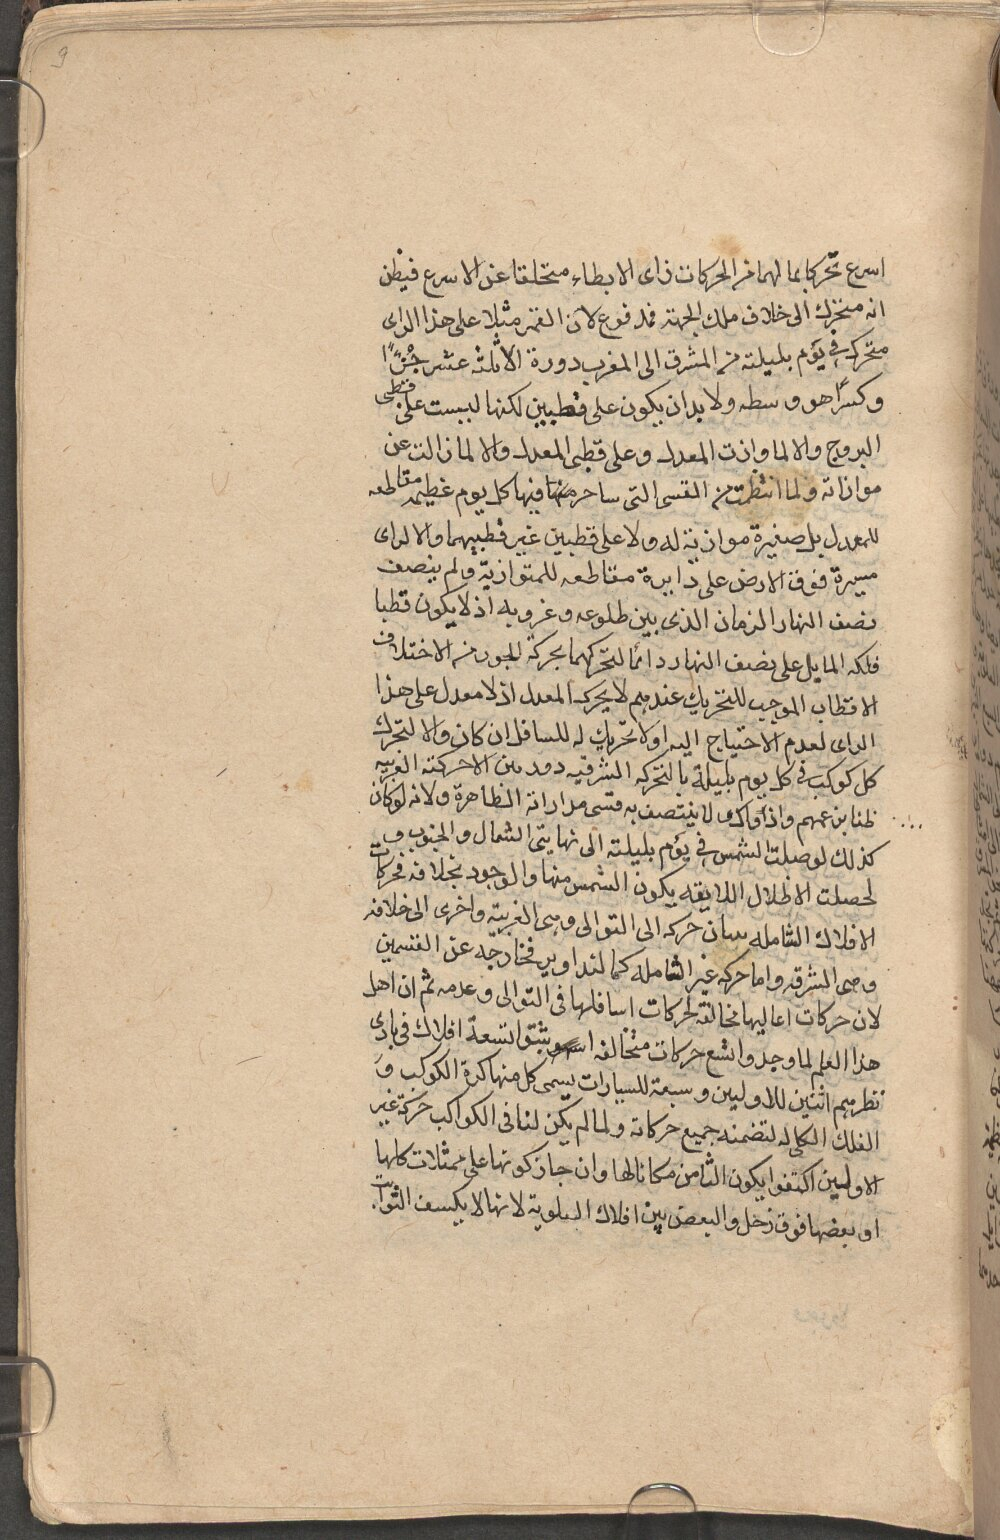 9
اسرع تحركا بما لهما من الحركات فراى الابطاء متخلفا عن الاسرع فيظن
انه متحرك الى خلاف تلك الجهة فمدفوع لان القمر مثلا على هذا الراى
متحرك فى يوم بليلته من المشرق الى المغرب دورة الا ثلثة عشر جزءًا
وكسرًا هو وسطه ولا بد ان يكون على قطبين لكنها ليست على قطبى
البروج والا لما وازت المعدل وعلى قطبى المعدل والا لما زالت عن
موازاته ولما انتظمت من القسى التى فيها كل يوم عظيمة مقاطعه
للمعدل بل صغيرة موازية له ولا على قطبين غير قطبيهما والا لراى
مسيرة فوق الارض على دايرة مقاطعه للمتوازية ولم ينصف
نصف النهار الزمان الذى بين طلوعه وغروبه اذ لا يكون قطبا
فلكه المايل على نصف النهار دائما لتحركهما بحركة من الاختلاف
الاقطاب الموجب للتحريك عندهم لا بحركة المعدل اذ لا معدل على هذا
الراى لعدم الاحتياج اليه او لا تحريك له للسافل ان كان والا لتحرك
كل كوكب فى كل يوم بليلة بالحركه الشرقيه دورتين الا حركته الغربيه
ظنا بزعمهم واذ ذاك لا ينتصف به قسى مداراته الظاهرة ولانه لو كان
كذلك لوصلت الشمس فى يوم بليلته الى نهايتى الشمال والجنوب و
لحصلت الاظلال اللايقه بكون الشمس منها والوجود بخلافه فحركات
الافلاك الشامله حركه الى التوالى وهى الغربية واخرى الى خلافه
وهى الشرقيه واما حركه غير الشامله كالتداوير فخارجه عن القسمين
لان حركات اعاليها مخالفة لحركات اسافلها فى التوالى وعدمه ثم ان اهل
هذا العلم لما وجدوا تسع حركات متخالفه اثبتوا تسعة افلاك فى بادى
نظرهم اثنين للاوليين وسبعة للسيارات يسمى كل منها كرة الكوكب و
الفلك الكلى له لتضمنه جميع حركاته ولما لم يكن لنا فى الكواكب حركة غير
الاوليين اكتفوا بكون الثامن مكانا لها وان جاز كونها على ممثلات كلها
او بعضها فوق زحل والبعض بين افلاك العلوية لانها لا يكسف الثوابت